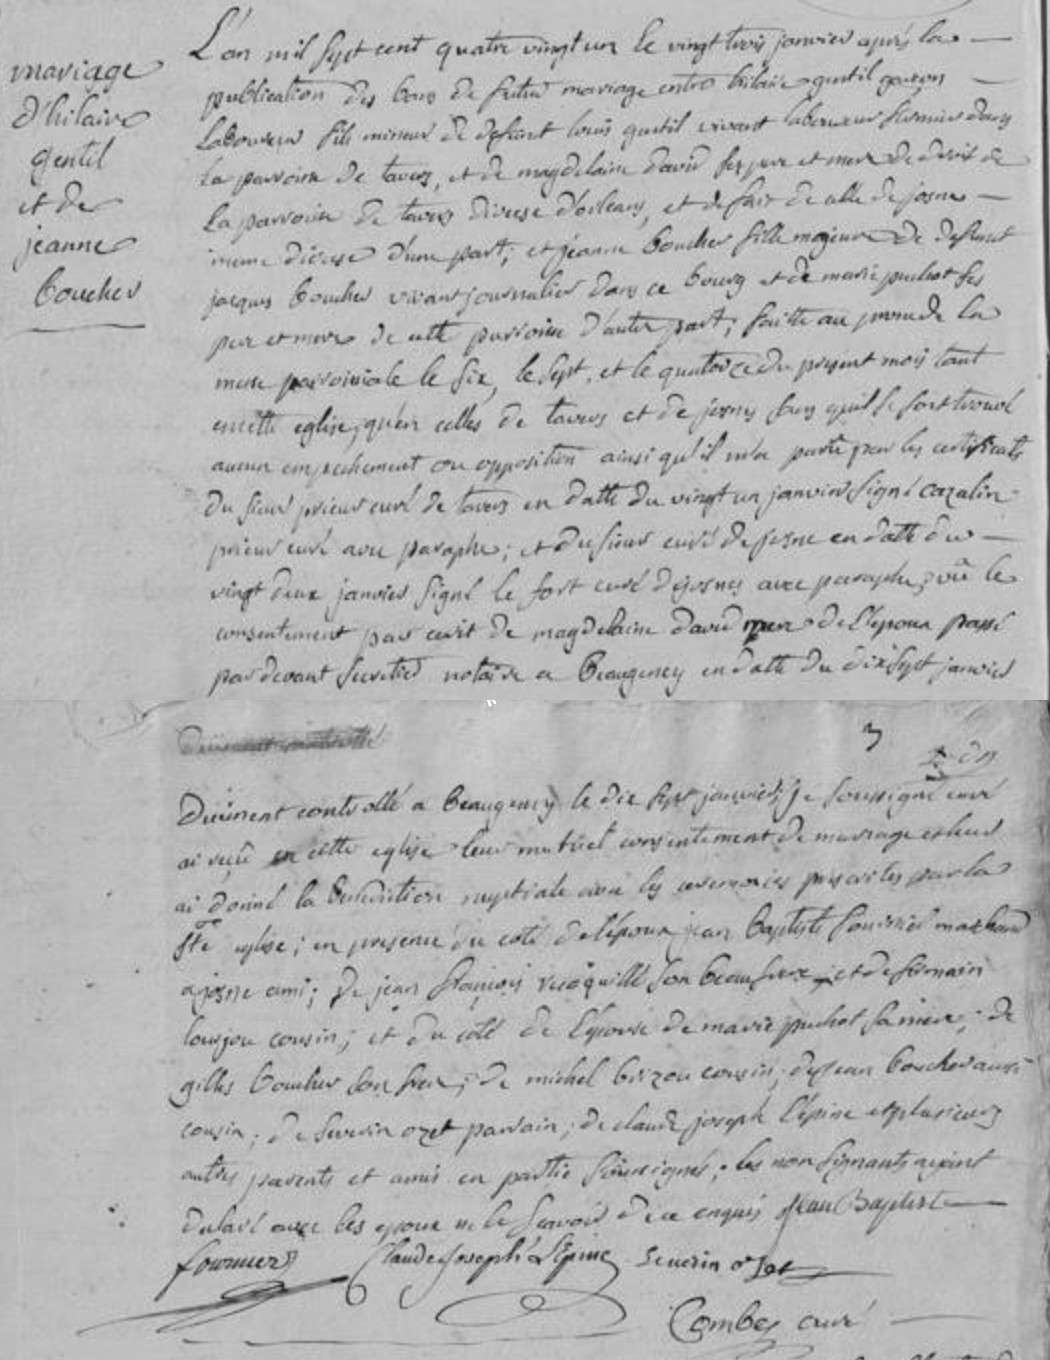 mariage
d'hilaire
gentil
et de
jeanne
boucher
L'an mil sept cent quatre vingt un le vingt trois janvier après la
publication des bans de futur mariage entre hilaire gentil garçon
laboureur fils mineur de defunt louis gentil vivant laboureur fermier dans
la parroisse de tavers, et de magdelaine david ses pere et mere de droit de
la parroisse de tavers diocese d'orleans, et de fait de celle de josnes
meme diocese d'une part; et jeanne boucher fille majeure de defunt
jacques boucher vivant journalier dans ce bourg et de marie puchot ses
pere et mere de cette parroisse d'autre part; faitte au prone de la
messe parroissiale le six, le sept, et le quatorze du present mois tant
en cette eglise, qu'en celles de tavers et de josnes sans qu'il se soit trouvé
aucun empechement ou opposition ainsi qu'il m'a paru par les certificats
du sieur prieur curé de tavers en datte du vingt un janvier signé cazalin
prieur curé avec paraphe; et du sieur curé de josne en datte du
vingt deux janvier signé le fort curé de josnes avec paraphe; vû le
consentement par ecrit de magdelaine david mere de l'epoux passé
par devant notaire a Beaugency en datte du dix sept janvier
3
Duement controllé a Beaugency le dix sept janvier; je soussigné curé
ai reçu en cette eglise leur mutuel consentement de mariage et leur
ai donné la benediction nuptiale avec les ceremonies prescrites par la
ste eglise; en presence du coté de l'epoux jean baptiste fournier marchand
a josne ami; de jean françois recoquillé son beau frere, et de germain
cousin; et du coté de l'epouse de marie puchot sa mere; de
gilles boucher son frere; de michel brizou cousin; de jean boucher aussi
cousin; de severin ozet parrain; de claude joseph l'épine et plusieurs
autres parents et amis en partie soussignés; les non signants ayant
declaré avec les epoux ne le sçavoir de ce enquis Jean Baptiste
fournier Claude Joseph L'Epine Severin ozet
Combes curé